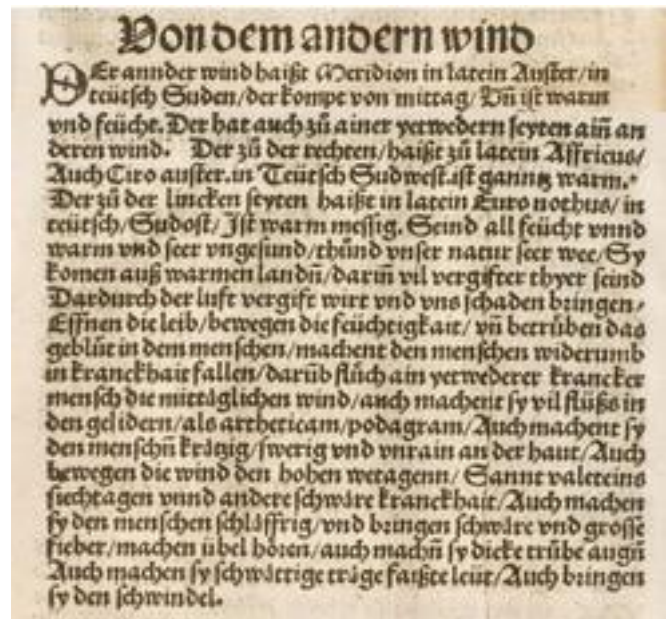 Von dem andern wind
DEr annder wind haißt Meridion in latein Auster/in
teütsch Suden/der kompt von mittag/Vñ ist warm
vnd feücht. Der hat auch zů ainer yetwedern seyten ain̄ an
deren wind. Der zů der rechten/haißt zů latein Affricus/
Auch Ciro auster.in Teütsch Sudwest.ist ganntz warm.
Der zů der lincken seyten haißt in latein Euro nothus/in
teütsch/Sudost/Ist warm messig. Seind all feücht vnnd
warm vnd seer vngesund/thůnd vnser natur seer wee/Sy
komen auß warmen landñ/darin̄ vil vergifter thyer seind
Dardurch der luft vergift wirt vnd vns schaden bringen/
Effnen die leib/bewegen die feüchtigkait/vñ betrüben das
geblůt in dem menschen/machent den menschen widerumb
in kranckhait fallen/darūb flůch ain yetwederer krancker
mensch die mittäglichen wind/auch machent sy vil flüß in
den gelidern/als arthericam/podagram/Auch machent sy
den menschñ krätzig/swerig vnd vnrain an der haut/Auch
bewegen die wind den hohen wetagenn/Sannt valeteins
siechtagen vnnd andere schwäre kranckhait/Auch machen
sy den menschen schläffrig/vnd bringen schwäre vnd grosse
fieber/machen übel hören/auch machñ sy dicke trübe augñ
Auch machen sy schwättige träge faißte leüt/Auch bringen
sy den schwindel.